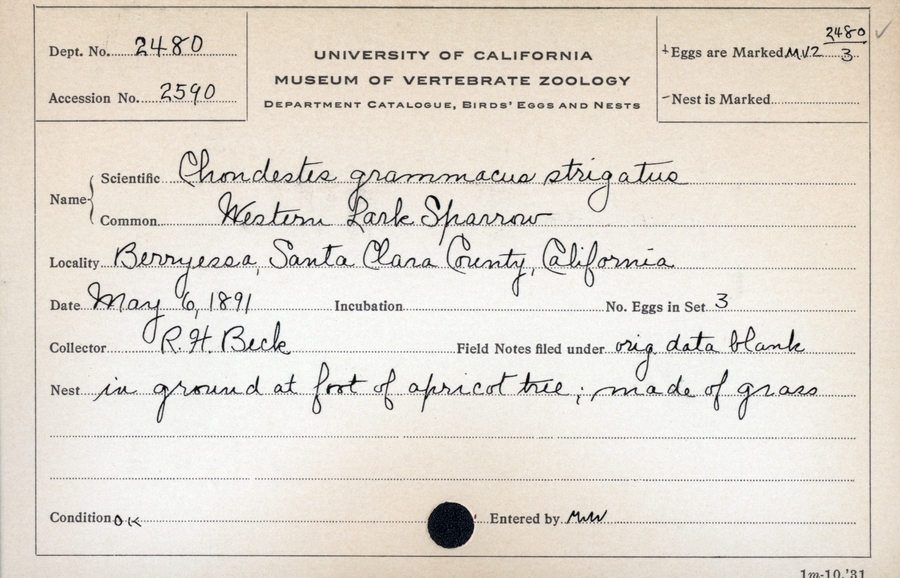 Dept. No. 2480
Accession No. 2590
UNIVERSITY OF CALIFORNIA
MUSEUM OF VERTEBRATE ZOOLOGY
DEPARTMENT CATALOGUE, BIRDS' EGGS AND NESTS
+Eggs are Marked MVZ 2480/3 ✓
-Nest is Marked
Name Scientific Chondestes grammacus strigatus
Common Western Lark Sparrow
Locality Berryessa, Santa Clara County, California
Date May 6, 1891 Incubation No. Eggs in Set 3
Collector R. H. Beck Field Notes filed under orig data blank
Nest in ground at foot of apricot tree; made of grass
Condition OK Entered by
1m-10,'31